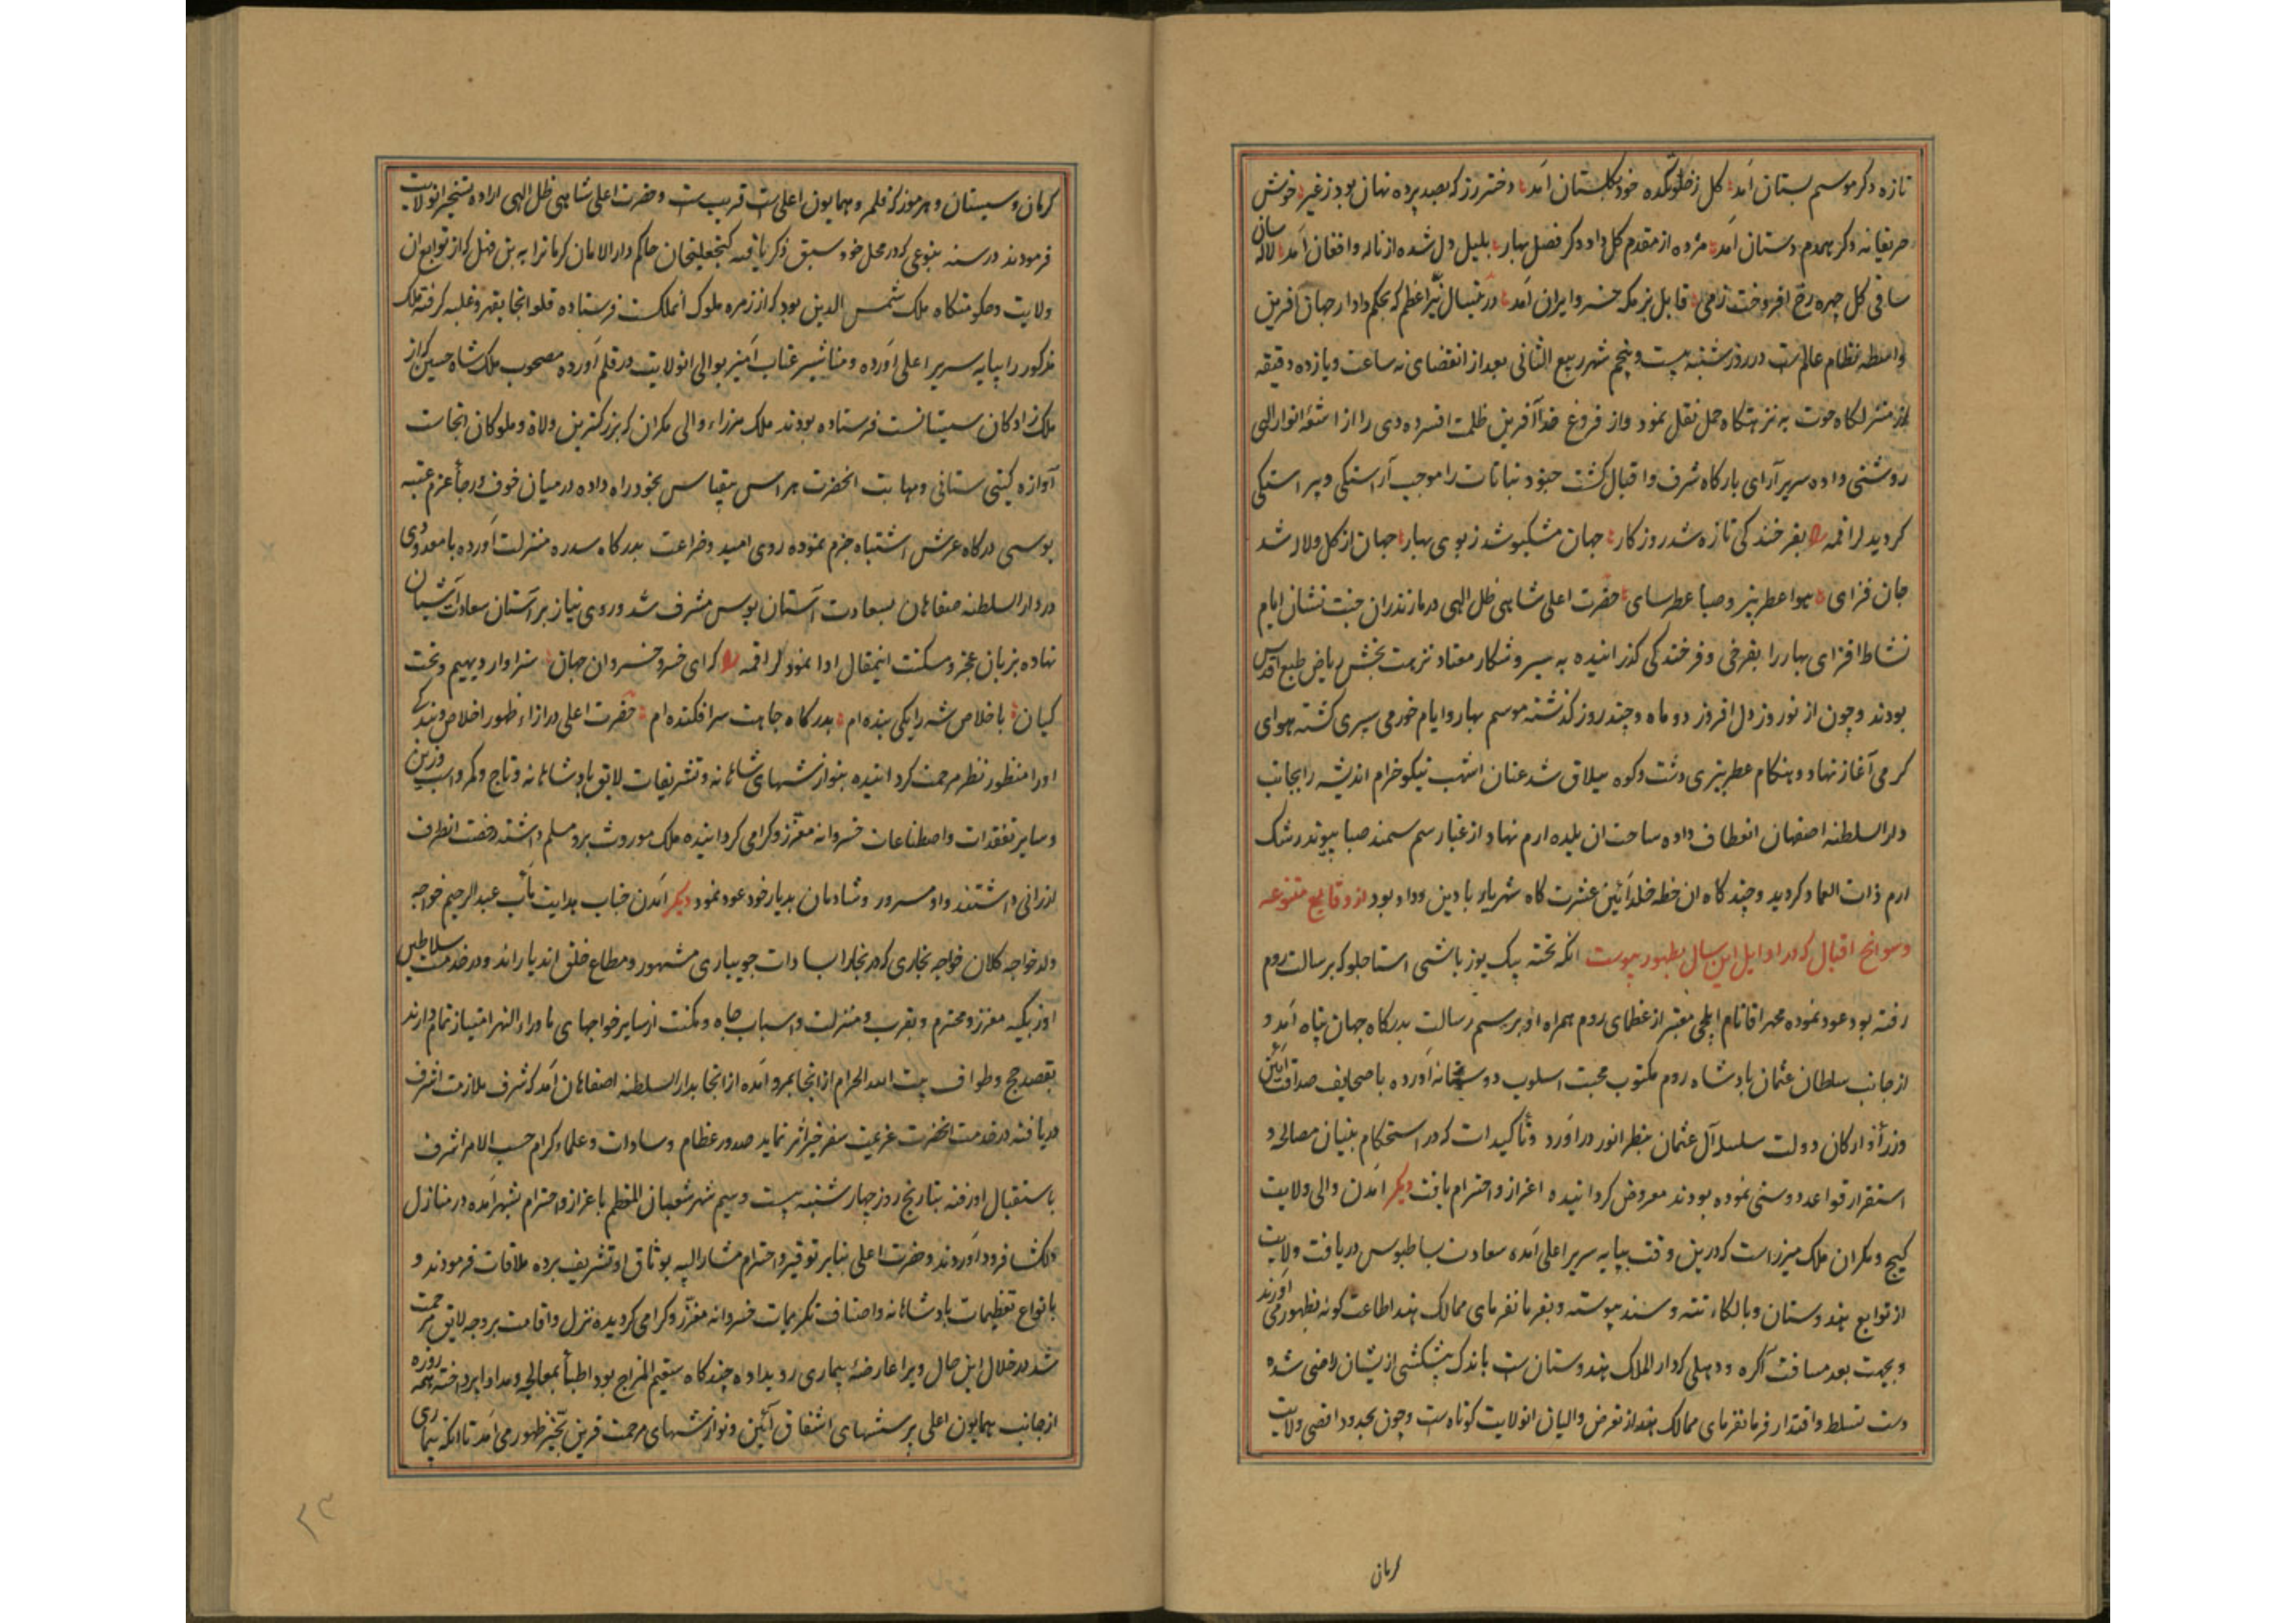 تازه دکر موسم بستان آمد گل ز خلوتکده خود بکلستان آمد دختر رز که بصد پرده نهان بود ز غیر خوش
حریفانه دکر همدم دستان آمد مژده از مقدم کل داد دکر فصل بهار بلبل دل شده از ناله و افغان آمد لاله سان
ساقی کل چهره رخ افروخت ز می قابل بزمکه خسرو ایران آمد درینسال نیر اعظم که بحکم دادار جهان آفرین
واسطه نظام عالم است در روز شنبه بیست و پنجم شهر ربیع الثانی بعد از انقضای نه ساعت و یازده دقیقه
از منزلکاه حوت به نزهتکاه حمل نقل نمود و از فروغ خدا آفرین ظلمت افسرده دی را از اشعه انوار الهی
روشنی داده سریر آرای بارکاه شرف و اقبال کشت جنود نباتات را موجب آراستکی و پیراستکی
کردید لراقمه بفرخندکی تازه شد روزکار جهان مشکبو شد ز بوی بهار جهان از کل و لاله شد
جان فزای هوا عطربیز و صبا عطرسای حضرت اعلی شاهی ظل الهی در مازندران جنت نشان ایام
نشاط افزای بهار را بفرخی و فرخندکی کذرانیده به سیر و شکار معتاد نزهت بخش ریاض طبع اقدس
بودند و چون از نوروز دل افروز دو ماه و چند روز کذشته موسم بهار و ایام خورمی سپری کشته هوای
کرمی آغاز نهاد و هنکام عطربیزی دشت و کوه ییلاق شد عنان اشهب نیکو خرام اندیشه را بجانب
دار السلطنه اصفهان انعطاف داده ساحت ان بلده ارم نهاد از غبار سم سمند صبا پیوند رشک
ارم ذات العماد کردید و چند کاه ان خطه خلد آئین عشرت کاه شهریار با دین و داد بود از وقایع متنوعه
و سوانح اقبال که در اوایل این سال بظهور پیوست انکه تخته بیک یوزباشی استاجلو که برسالت روم
رفته بود عود نموده محمد اقا نام ایلچی معتبر از عظمای روم همراه او برسم رسالت بدرکاه جهان پناه آمد و
از جانب سلطان عثمان پادشاه روم مکتوب محبت اسلوب دوستانه آورده با صحایف صداقت آئین
وزراء و ارکان دولت سلسله آل عثمان بنظر انور درآورد و تأکیدات که در استحکام بنیان مصالحه و
استقرار قواعد دوستی نموده بودند معروض کردانیده اعزاز و احترام یافت دیکر آمدن والی ولایت
کیج و مکران ملک میرزا است که درین وقت بپایه سریر اعلی آمده سعادت بساط بوس دریافت ولایت
از توابع هندوستان و بالکاء تته و سند پیوسته و بفرمانفرمای ممالک هند اطاعت کونه بظهور می آورند
و بجهت بعد مسافت آکره و دهلی که دار الملک هندوستان است باندک پیشکشی از ایشان راضی شده
دست تسلط و اقتدار فرمانفرمای ممالک هند از تعرض والیان انولایت کوتاه است و چون بحدود اقصی ولایت
کرمان
کرمان و سیستان و هرموز که قلمرو همایون اعلی است قریب است و حضرت اعلی شاهی ظل الهی اراده تسخیر انولایت
فرمودند در سنه بنوعی که در محل خود سبق ذکر یافته کنجعلیخان حاکم دار الامان کرمان را به بن فهل که از توابع ان
ولایت و حکومتکاه ملک شمس الدین بود که از زمره ملوک انملک است فرستاده قلعه انجا بقهر و غلبه کرفته ملک
مذکور را بپایه سریر اعلی آورده و مناشیر عتاب آمیز بوالی انولایت در قلم آورده مصحوب ملک شاه حسین که از
ملک زادکان سیستانست فرستاده بودند ملک میرزاء والی مکران که بزرکترین ولاة و ملوکان انجاست
آوازه کیتی ستانی و مهابت انحضرت هراس بیقیاس بخود راه داده در میان خوف و رجأ عزم عتبه
بوسی درکاه عرش اشتباه جزم نموده روی امید و ضراعت بدرکاه سدره منزلت آورده با معدودی
در دار السلطنه صفاهان بسعادت آستان بوس مشرف شد و روی نیاز بر آستان سعادت آشیان
نهاده بزبان عجز و مسکنت اینمقال ادا نمود لراقمه که ای خسرو خسروان جهان سزاوار دیهیم و تخت
کیان باخلاص شه را یکی بنده ام بدرکاه جاهت سرافکنده ام حضرت اعلی در ازاء ظهور اخلاص و بندکی
او را منظور نظر مرحمت کردانیده بنوازشهای شاهانه و تشریفات لایق پادشاهانه و تاج و کمر و اسب و زین
و سایر تفقدات و اصطناعات خسروانه معزز و کرامی کردانیده ملک موروث برو مسلم داشته رخصت انطرف
ارزانی داشتند و او مسرور و شادمان بدیار خود عود نمود دیکر آمدن جناب هدایت مآب عبد الرحیم خواجه
ولد خواجه کلان خواجه بخاری که در بخارا بسادات جویباری مشهور و مطاع خلق اندیار اند و در خدمت سلاطین
اوزبکیه معزز و محترم و بقرب و منزلت و اسباب جاه و مکنت از سایر خواجهای ماوراء النهر امتیاز تمام دارند
بقصد حج و طواف بیت الله الحرام از انجا بمرو آمده از انجا بدار السلطنه اصفاهان آمد که شرف ملازمت اشرف
دریافته در خدمت انحضرت عزیمت سفر خیر اثر نماید صدور عظام و سادات و علماء کرام حسب الامر اشرف
باستقبال او رفته بتاریخ روز چهارشنبه بیست و سیم شهر شعبان المعظم باعزاز و احترام بشهر آمده در منازل
دلکشا فرود آوردند و حضرت اعلی بنابر توقیر و احترام مشار الیه بوثاق او تشریف برده ملاقات فرمودند و
بانواع تعظیمات پادشاهانه و اصناف تکریمات خسروانه معزز و کرامی کردیده نزل و اقامت بر وجه لایق مرحمت
شد در خلال این حال ویرا عارضهٔ بیماری رویداده چند کاه سقیم المزاج بود اطبأ بمعالجه و مداوا پرداخته همه روزه
از جانب همایون اعلی پرسشهای اشفاق آئین و نوازشهای مرحمت قرین بحیز ظهور می آمد تا انکه بیماری